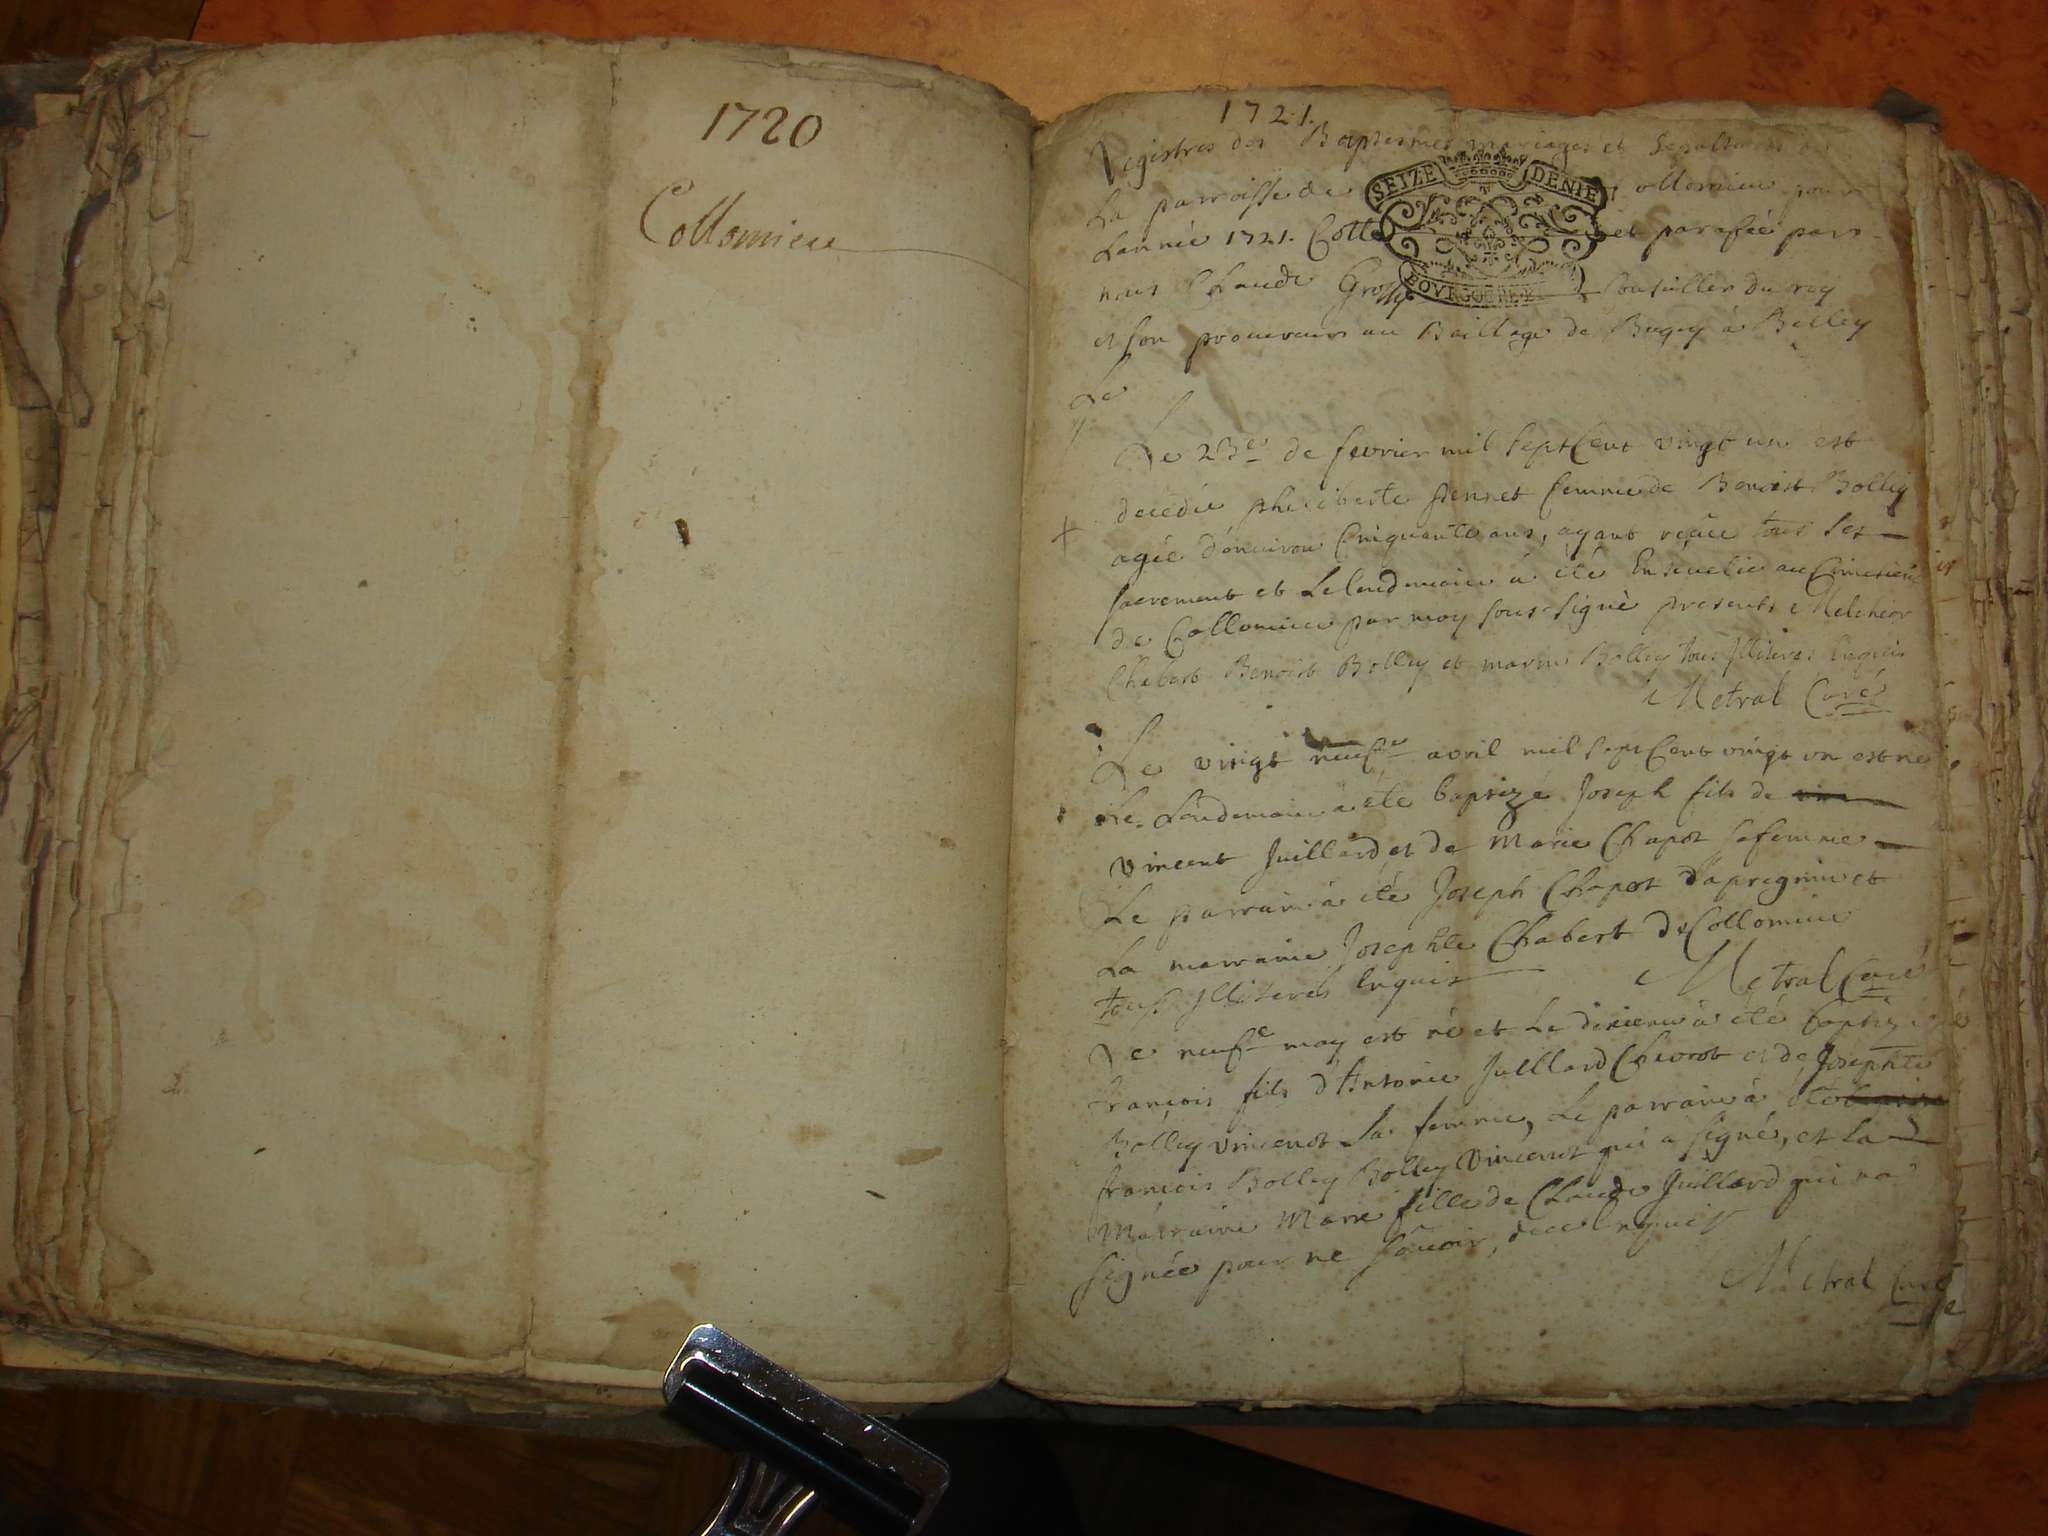 1720
Collomieu
1721.
Registres des Baptesmes mariages et Sepultures de
La parroisse de Collomieu pour
Lannée 1721. Cotté et parafée par
nous Claude Conseiller du roy
et son procureur au Bailliage de Bugey à Belley
SEIZE DENIE
BOVRGOGNE
Le
Le 23e de fevrier mil sept Cent vingt un est
decedée philiberte femme de Benoist Bolley
agée d'environ Cinquante ans, ayant reçüe tous les
sacrement et Le lendemain a été Ensevelie au Cimetiere
de Collomieu par moy sous signé presents Melchior
Chabert Benoist Bolley et Bolley tous Illiteres Enquis
Metral Curé
Le vingt neufe avril mil sept Cent vingt un est né
Le Lendemain a été baptizé Joseph fils de
vincent Juillard et de Marie Chapot sa femme
Le parrain à été Joseph Chapot d'apregnin et
La marraine Josephte Chabert de Collomieu
tous Illiterés Enquis
Metral Curé
Le neufe may est né et Le dixieme à été baptizé
françois fils d'Antoine Juilllard Chevrot et de Josephte
Bolley vincenot sa femme, Le parrain à été
françois Bolley Bolley Vincenot qui a signés, et La
Marraine Marie fille de Claude Juillard qui na
signée pour ne sçavoir, de ce Enquis
Metral Curé